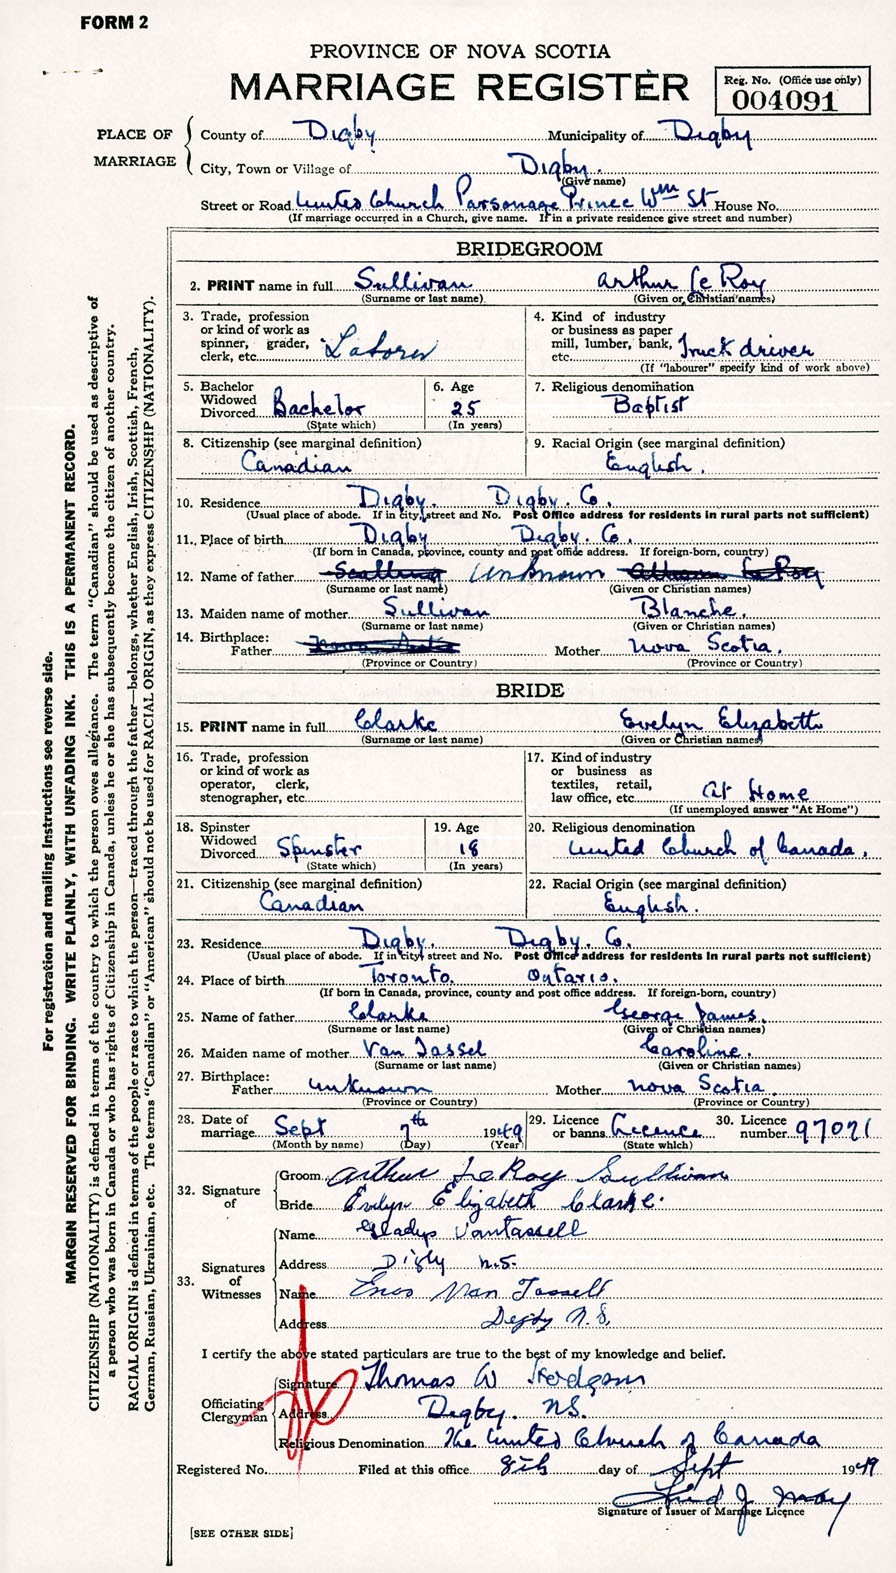 FORM 2
PROVINCE OF NOVA SCOTIA
MARRIAGE REGISTER
Reg. No. (Office use only)
004091
PLACE OF MARRIAGE
County of Digby Municipality of Digby
City, Town or Village of Digby.
(Give name)
Street or Road United Church Parsonage Prince Wm St House No.
(If marriage occurred in a Church, give name. If in a private residence give street and number)
BRIDEGROOM
2. PRINT name in full Sullivan Arthur Le Roy
(Surname or last name) (Given or Christian names)
3. Trade, profession or kind of work as spinner, grader, clerk, etc. Laborer
4. Kind of industry or business as paper mill, lumber, bank, etc. Truck driver
(If "labourer" specify kind of work above)
5. Bachelor Widowed Divorced Bachelor
(State which)
6. Age 25
(In years)
7. Religious denomination Baptist
8. Citizenship (see marginal definition) Canadian
9. Racial Origin (see marginal definition) English.
10. Residence Digby. Digby. Co.
(Usual place of abode. If in city, street and No. Post Office address for residents in rural parts not sufficient)
11. Place of birth Digby Digby. Co.
(If born in Canada, province, county and post office address. If foreign-born, country)
12. Name of father Unknown Le Roy
(Surname or last name) (Given or Christian names)
13. Maiden name of mother Sullivan Blanche.
(Surname or last name) (Given or Christian names)
14. Birthplace: Father Nova Scotia Mother Nova Scotia.
(Province or Country) (Province or Country)
BRIDE
15. PRINT name in full Clarke Evelyn Elizabeth
(Surname or last name) (Given or Christian names)
16. Trade, profession or kind of work as operator, clerk, stenographer, etc.
17. Kind of industry or business as textiles, retail, law office, etc. At Home
(If unemployed answer "At Home")
18. Spinster Widowed Divorced Spinster
(State which)
19. Age 18
(In years)
20. Religious denomination United Church of Canada.
21. Citizenship (see marginal definition) Canadian
22. Racial Origin (see marginal definition) English.
23. Residence Digby. Digby. Co.
(Usual place of abode. If in city, street and No. Post Office address for residents in rural parts not sufficient)
24. Place of birth Toronto. Ontario.
(If born in Canada, province, county and post office address. If foreign-born, country)
25. Name of father Clarke George James.
(Surname or last name) (Given or Christian names)
26. Maiden name of mother Van Tassel Caroline.
(Surname or last name) (Given or Christian names)
27. Birthplace: Father Unknown Mother Nova Scotia.
(Province or Country) (Province or Country)
28. Date of marriage Sept 7th 1949
(Month by name) (Day) (Year)
29. Licence or banns Licence
(State which)
30. Licence number 97071
32. Signature of
Groom Arthur LeRoy Sullivan
Bride Evelyn Elizabeth Clarke.
33. Signatures of Witnesses
Name Gladys VanTassell
Address Digby N.S.
Name Enos Van Tassell
Address Digby N.S.
I certify the above stated particulars are true to the best of my knowledge and belief.
Officiating Clergyman
Signature Thomas W Hodgson
Address Digby. N.S.
Religious Denomination The United Church of Canada
Registered No. Filed at this office 8th day of Sept 1949
Signature of Issuer of Marriage Licence
[SEE OTHER SIDE]
For registration and mailing instructions see reverse side.
MARGIN RESERVED FOR BINDING. WRITE PLAINLY, WITH UNFADING INK. THIS IS A PERMANENT RECORD.
CITIZENSHIP (NATIONALITY) is defined in terms of the country to which the person owes allegiance. The term "Canadian" should be used as descriptive of
a person who was born in Canada or who has rights of Citizenship in Canada, unless he or she has subsequently become the citizen of another country.
RACIAL ORIGIN is defined in terms of the people or race to which the person—traced through the father—belongs, whether English, Irish, Scottish, French,
German, Russian, Ukrainian, etc. The terms "Canadian" or "American" should not be used for RACIAL ORIGIN, as they express CITIZENSHIP (NATIONALITY).